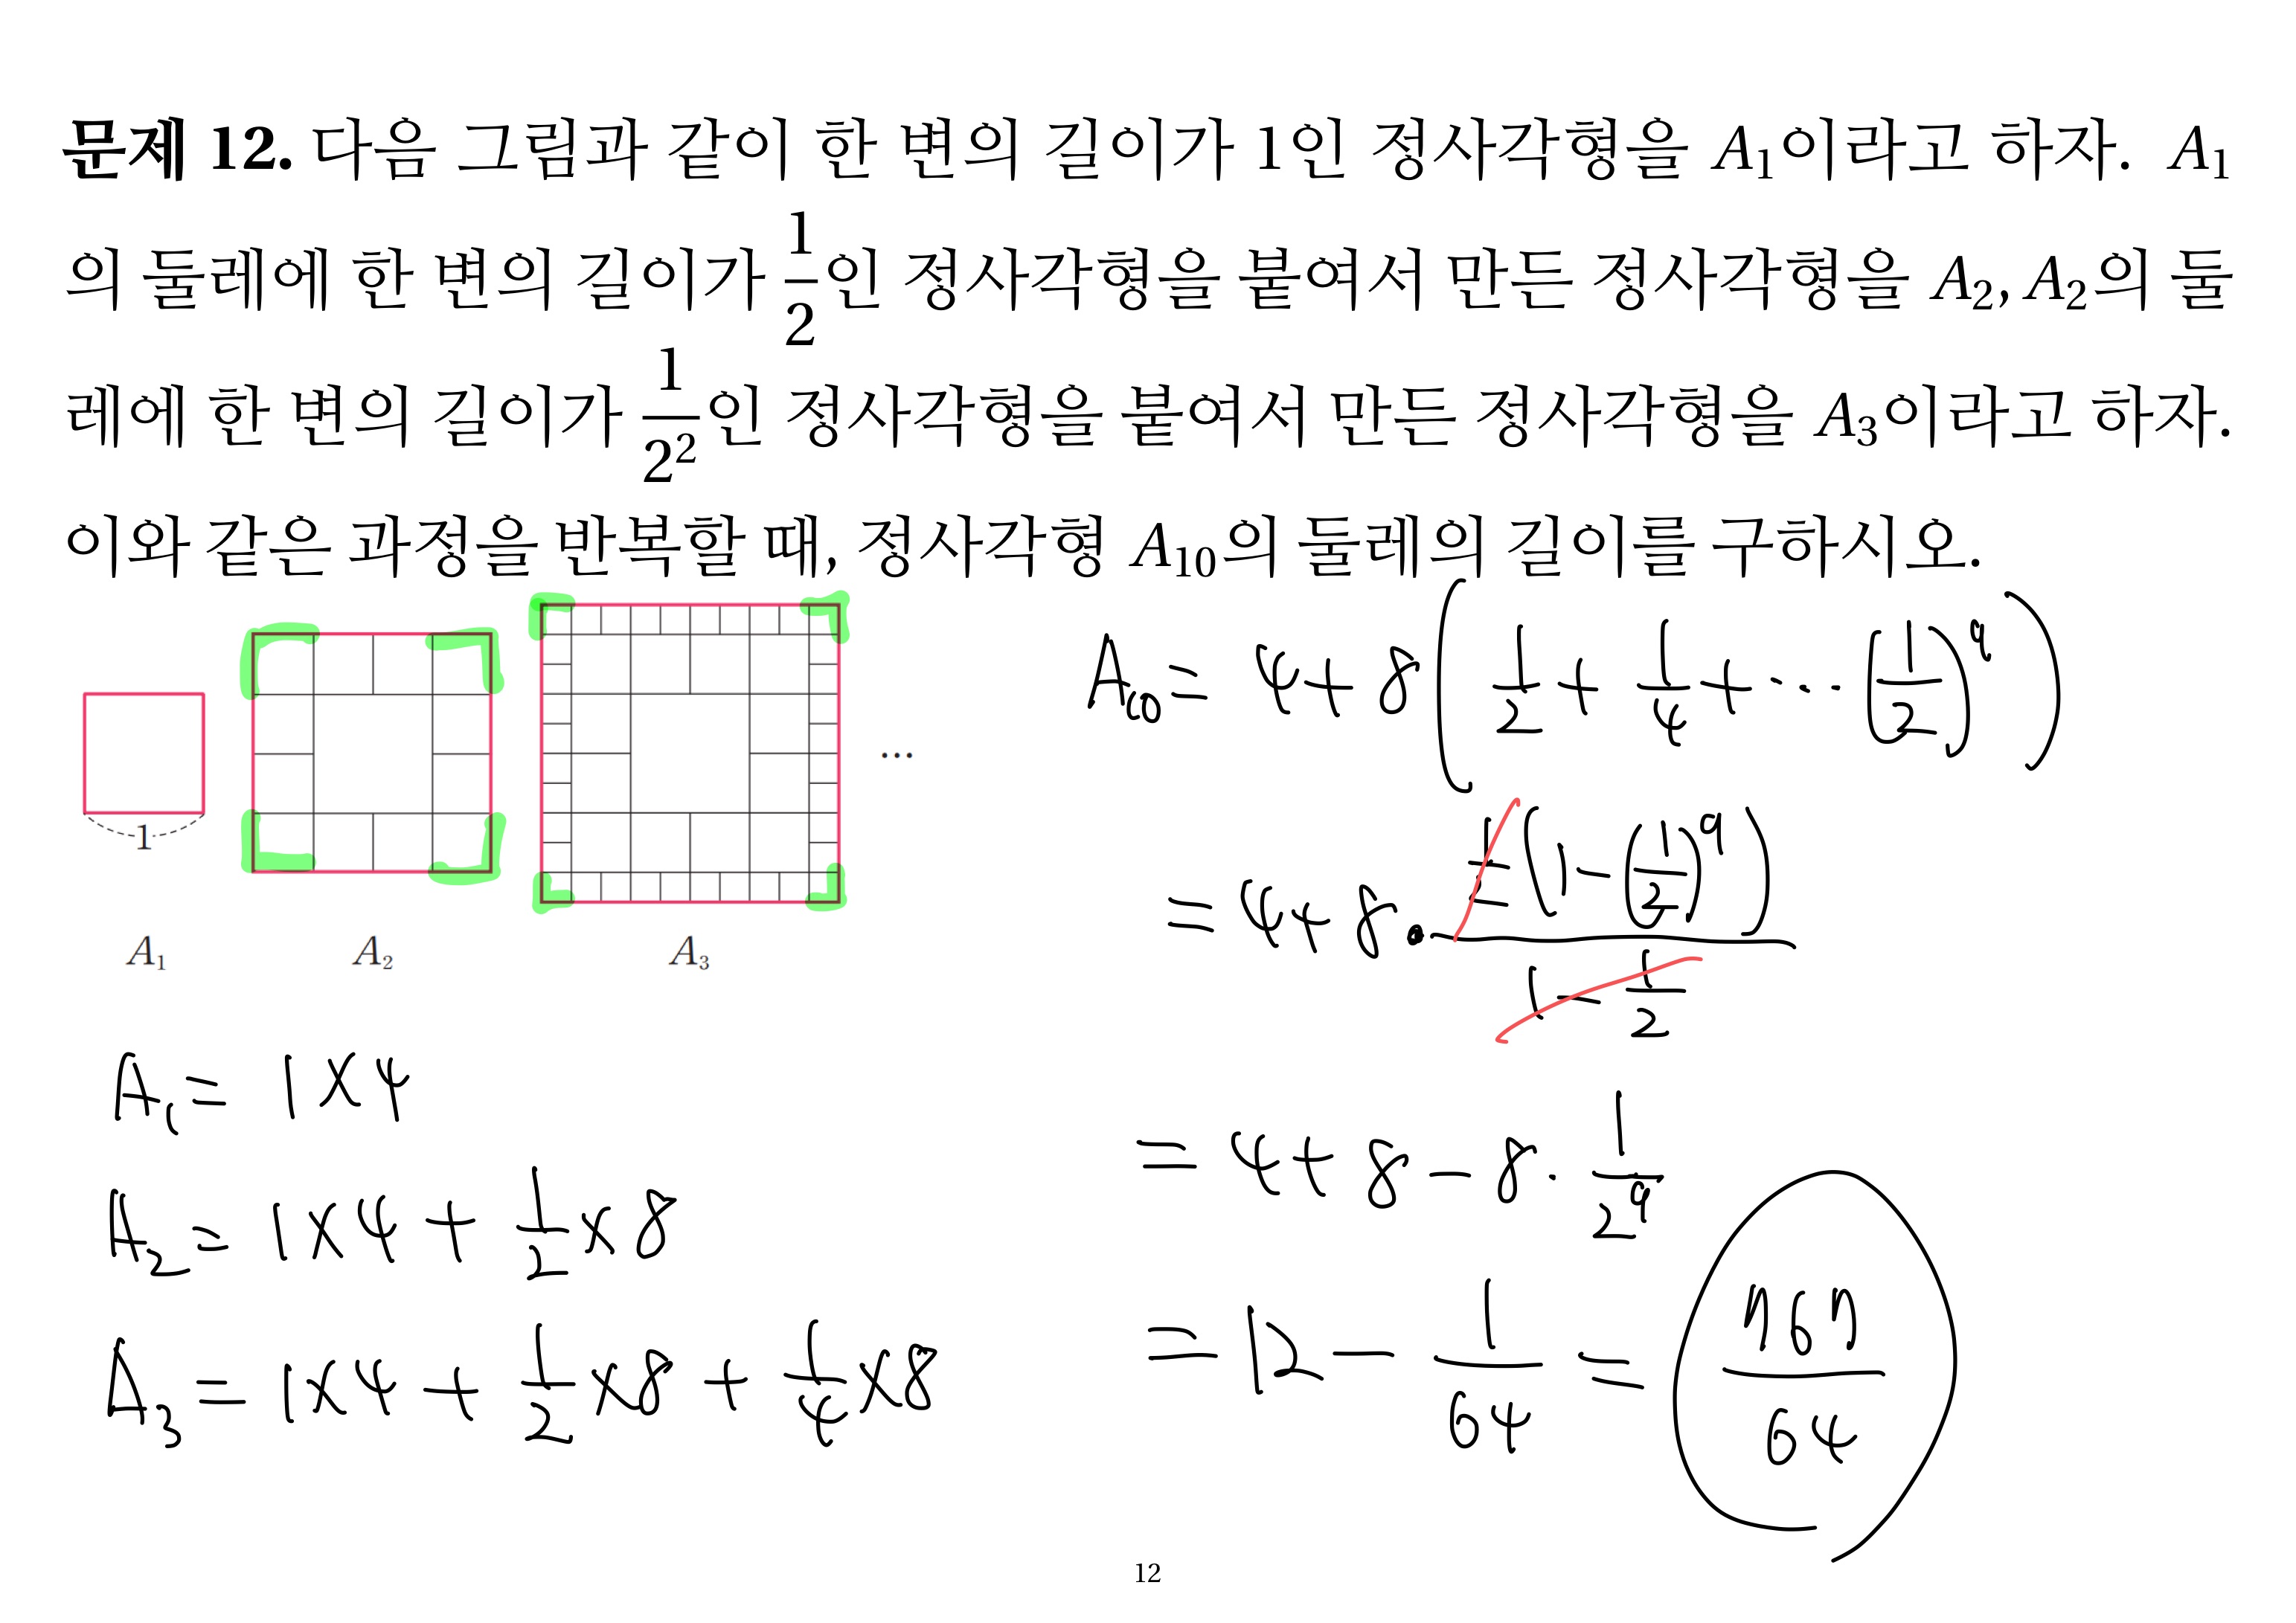 문제 12. 다음 그림과 같이 한 변의 길이가 1인 정사각형을 A₁이라고 하자. A₁
의 둘레에 한 변의 길이가 1/2인 정사각형을 붙여서 만든 정사각형을 A₂, A₂의 둘
레에 한 변의 길이가 1/2²인 정사각형을 붙여서 만든 정사각형을 A₃이라고 하자.
이와 같은 과정을 반복할 때, 정사각형 A₁₀의 둘레의 길이를 구하시오.
1
...
A₁ A₂ A₃
A₁ = 1×4
A₂ = 1×4 + 1/2×8
A₃ = 1×4 + 1/2×8 + 1/4×8
A₁₀ = 4+8(1/2 + 1/4 + ... (1/2)⁹)
= 4+8 · 1/2(1-(1/2)⁹) / (1-1/2)
= 4+8-8 · 1/2⁹
= 12 - 1/64 = 767/64
12